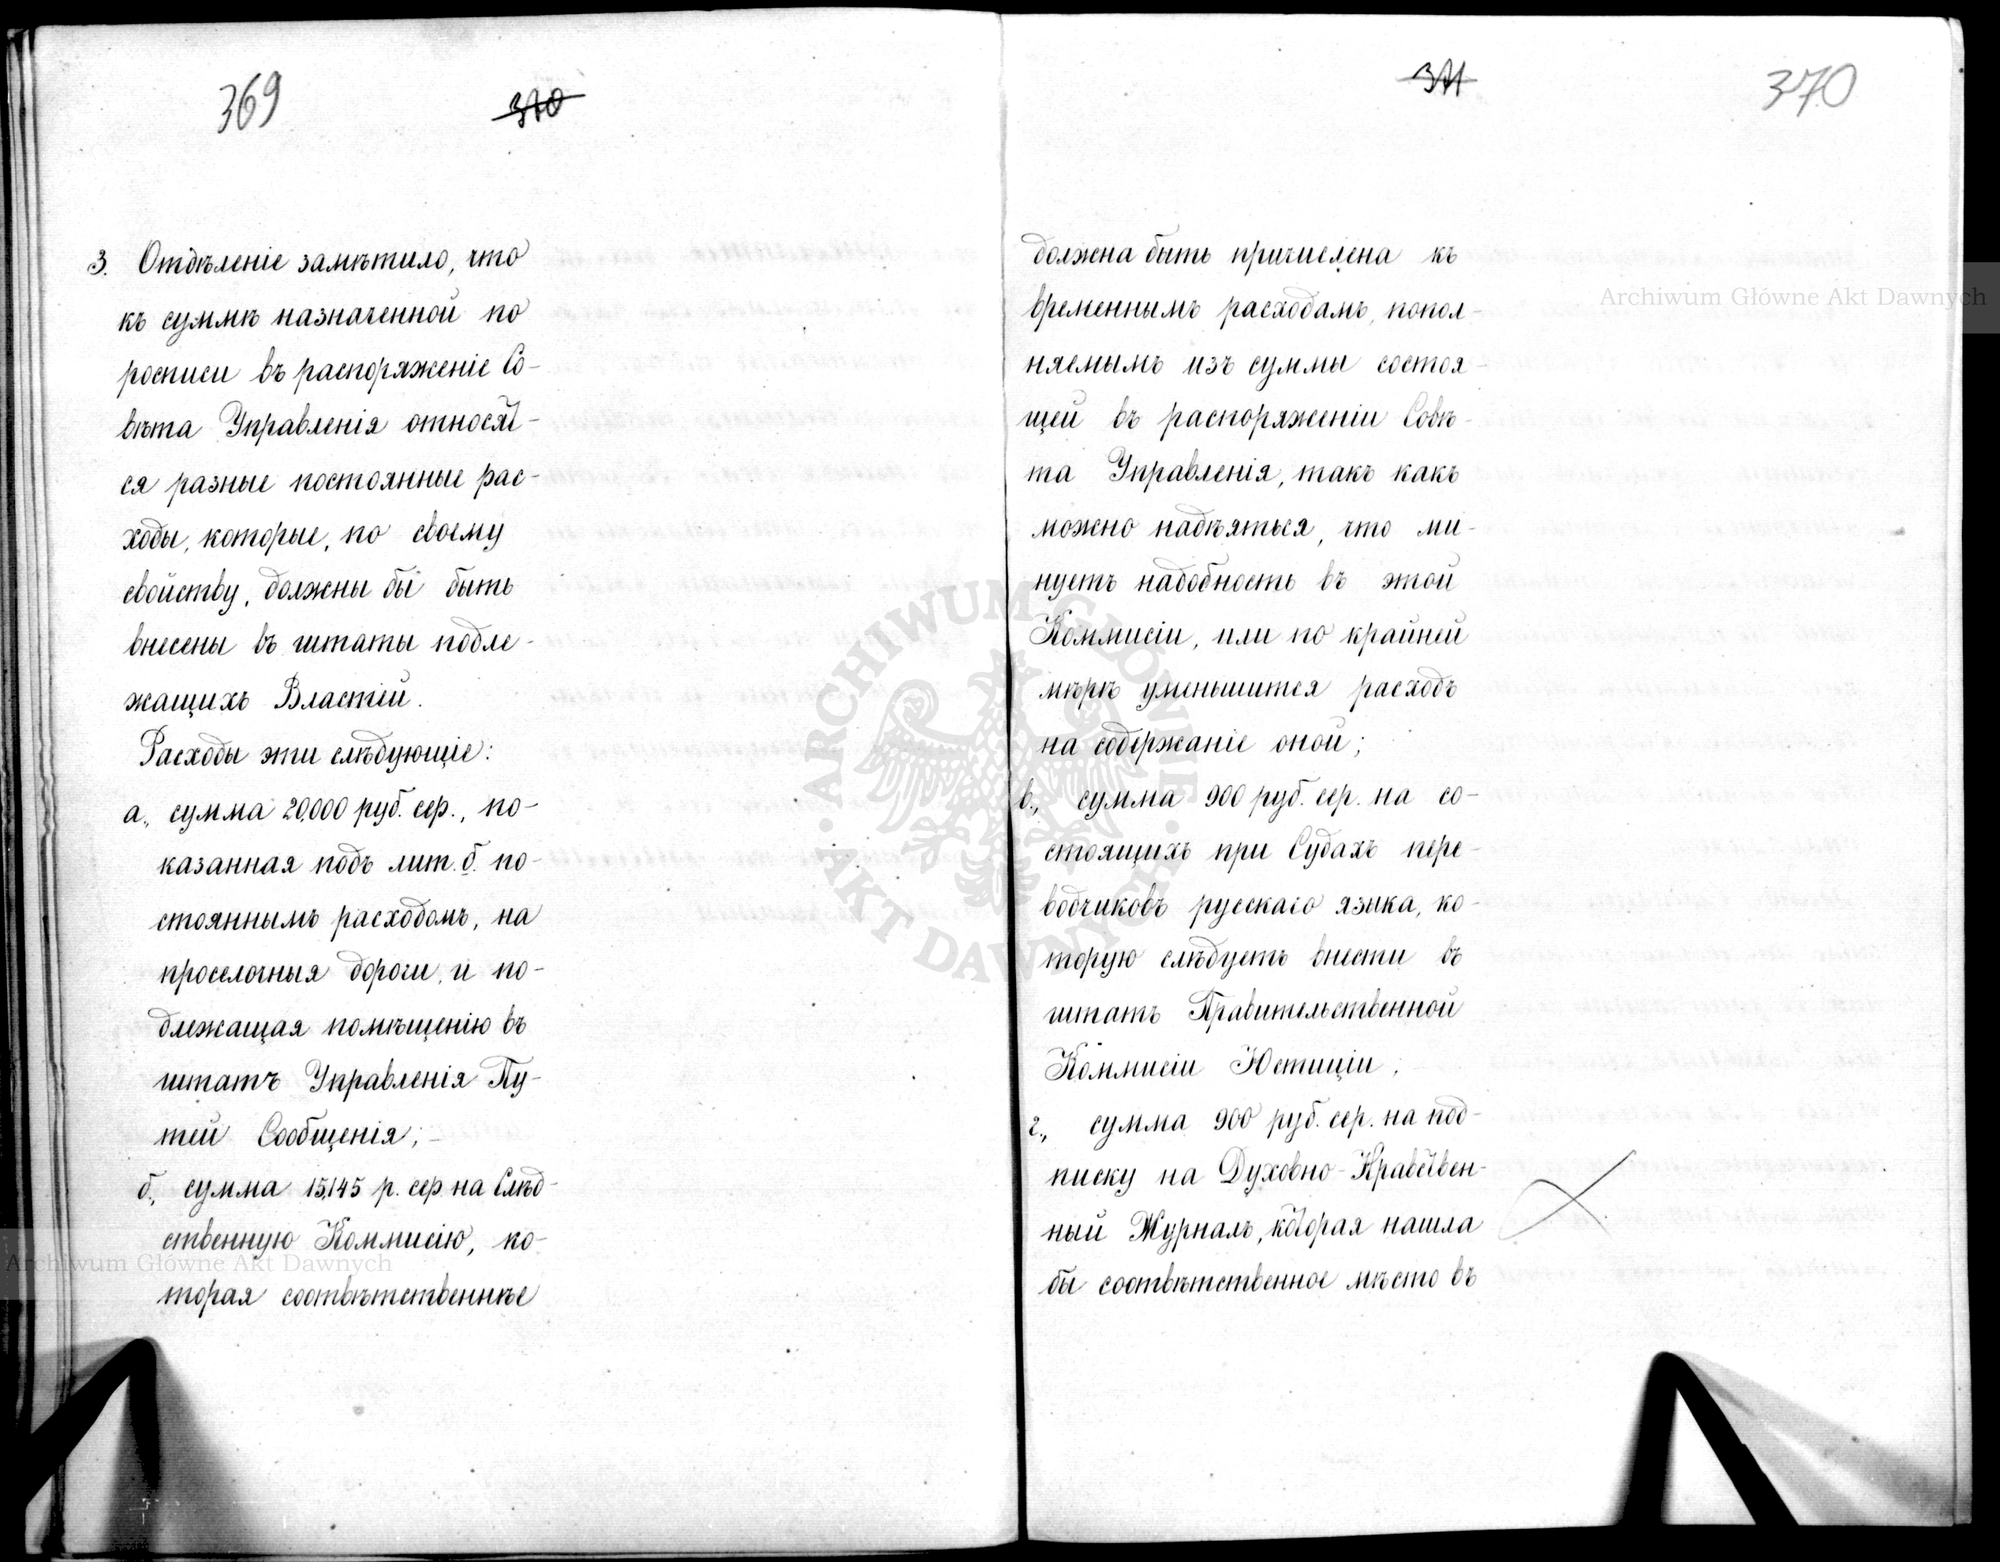 369
370
3. Отдѣленіе замѣтило, что
къ суммѣ назначенной по
росписи въ распоряженіе Со-
вѣта Управленія относят-
ся разные постоянные рас-
ходы, которые, по своему
свойству, должны бы быть
внесены въ штаты подле-
жащихъ Властей.
Расходы эти слѣдующіе:
а., сумма 20,000 руб. сер., по-
казанная подъ лит. б. по-
стояннымъ расходомъ, на
проселочныя дороги, и по-
длежащая помѣщенію въ
штатъ Управленія Пу-
тей Сообщенія;
б., сумма 15,145 р. сер. на Слѣд-
ственную Коммисію, ко-
торая соотвѣтственнѣе
371
370
должна быть причислена къ
временнымъ расходамъ, попол-
няемымъ изъ суммы состоя-
щей въ распоряженіи Совѣ-
та Управленія, такъ какъ
можно надѣяться, что ми-
нуетъ надобность въ этой
Коммисіи, или по крайней
мѣрѣ уменьшится расходъ
на содержаніе оной;
в., сумма 900 руб. сер. на со-
стоящихъ при Судахъ пере-
водчиковъ русскаго языка, ко-
торую слѣдуетъ внести въ
штатъ Правительственной
Коммисіи Юстиціи;
г., сумма 900 руб. сер. на под-
писку на Духовно-Нравствен-
ный Журналъ, которая нашла
бы соотвѣтственное мѣсто въ
Archiwum Główne Akt Dawnych
Archiwum Główne Akt Dawnych
ARCHIWUM GŁÓWNE
AKT DAWNYCH